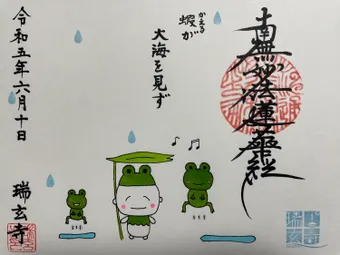 南無妙法蓮華経
かえる
蝦が
大海を見ず
令和五年六月十日
瑞玄寺